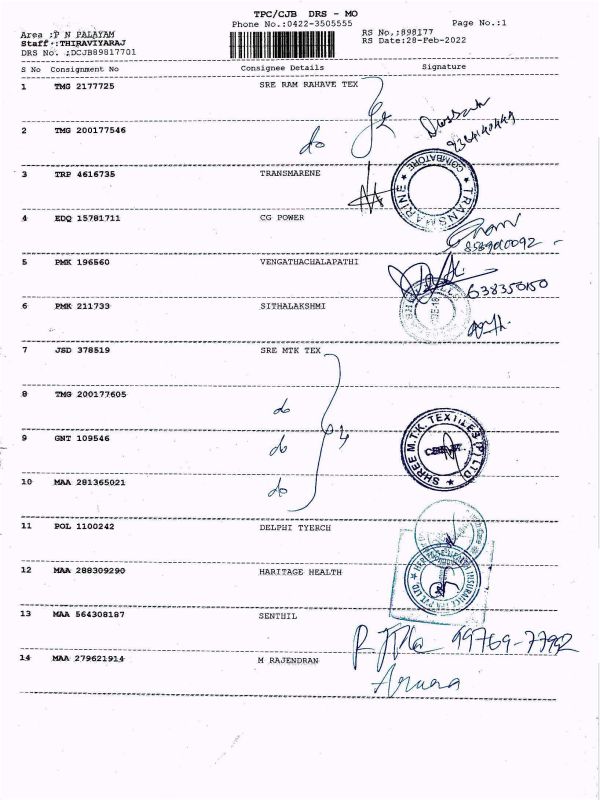 TPC/CJB DRS - MO
Phone No.:0422-3505555
Page No.:1
Area :P N PALAYAM
Staff :THIRAVIYARAJ
DRS No. :DCJB89817701
RS No.:898177
RS Date:28-Feb-2022
S No Consignment No Consignee Details Signature
1 TMG 2177725 SRE RAM RAHAVE TEX
2 TMG 200177546 do
3 TRP 4616735 TRANSMARENE
TRANSMARINE COIMBATORE
4 EDQ 15781711 CG POWER
5 PMK 196560 VENGATHACHALAPATHI
6 PMK 211733 SITHALAKSHMI
7 JSD 378519 SRE MTK TEX
8 TMG 200177605 do
9 GNT 109546 do
SHREE M.T.K. TEXTILES (P) LTD
10 MAA 281365021 do
11 POL 1100242 DELPHI TYERCH
12 MAA 288309290 HARITAGE HEALTH
13 MAA 564308187 SENTHIL
99769-77992
14 MAA 279621914 M RAJENDRAN
Aruna